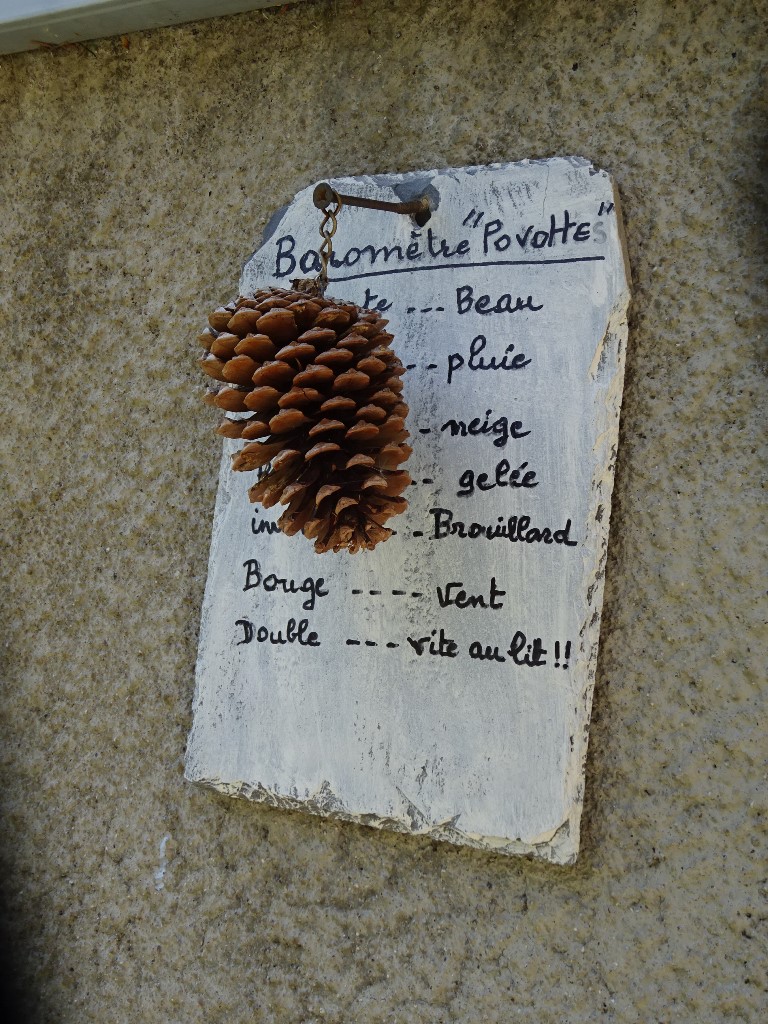 Baromètre "Povottes"
te --- Beau
-- pluie
- neige
-- gelée
in -- Brouillard
Bouge ---- vent
Double --- vite au lit !!